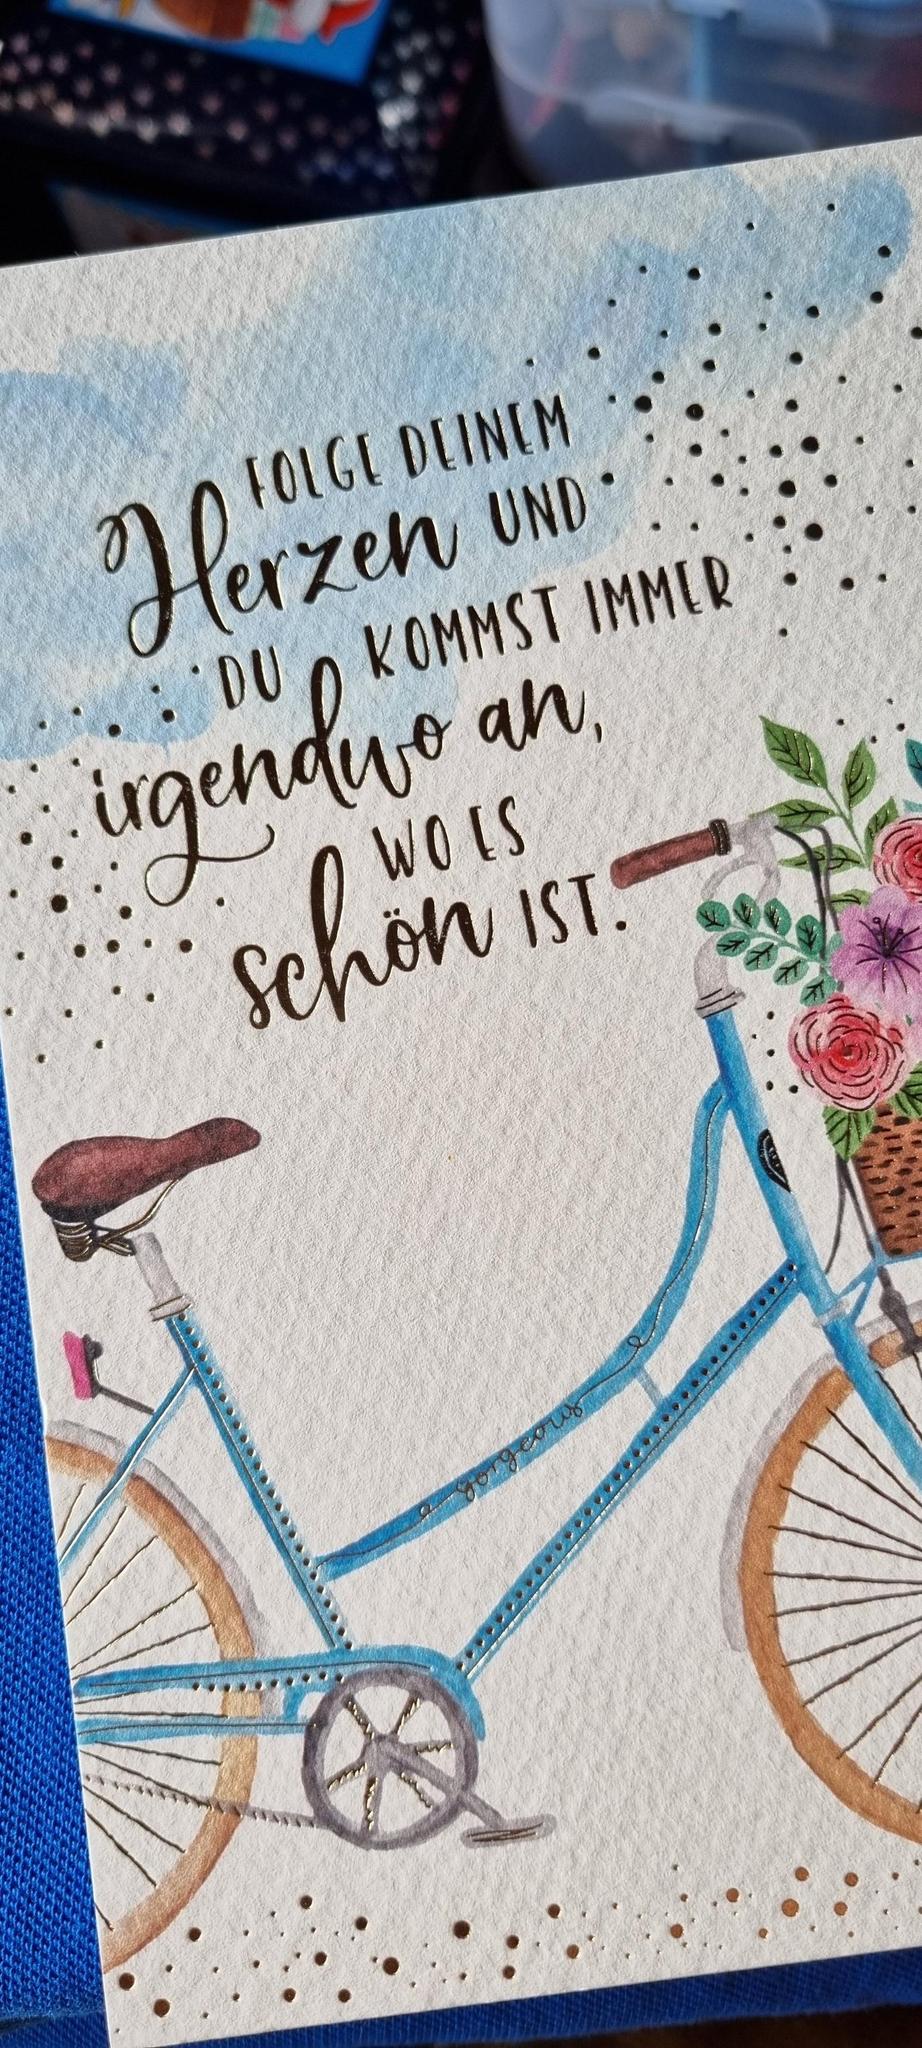 FOLGE DEINEM
Herzen UND
DU KOMMST IMMER
irgendwo an,
WO ES
schön IST.
gorgeous